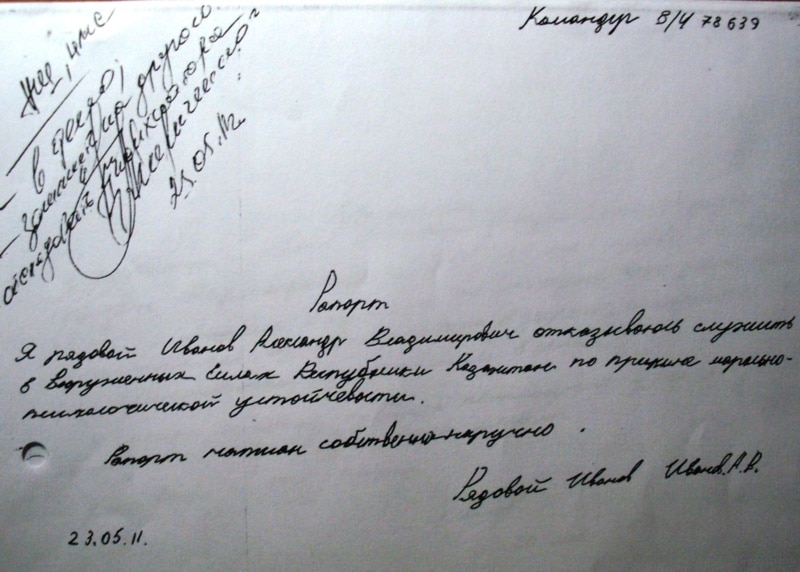 Командиру В/Ч 78639
в дело;
другого
25.05.11г.
Рапорт
Я рядовой Иванов Александр Владимирович отказываюсь служить
в Вооруженных Силах Республики Казахстан по причине морально-
психологической устойчевости.
Рапорт написан собственно-наручно.
Рядовой Иванов Иванов.А.В.
23.05.11.